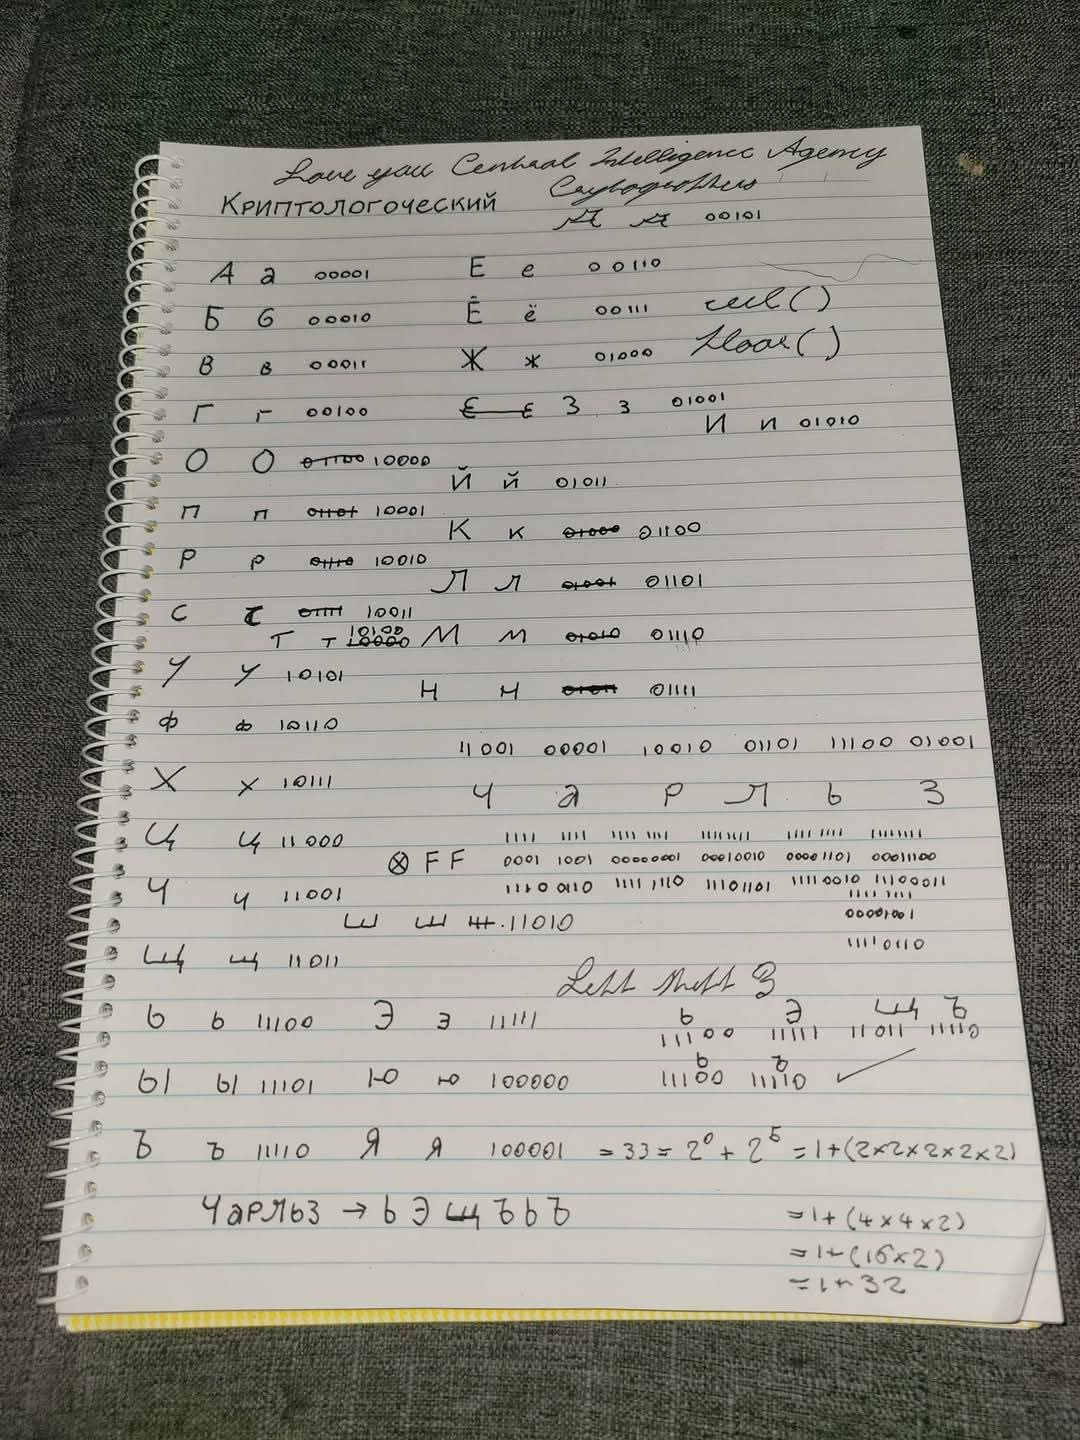 Love you Central Intelligence Agency
Криптологоческий
Д д 00101
А а 00001 Е е 00110
Б б 00010 Ё ё 00111 ceil()
В в 00011 Ж ж 01000 floor()
Г г 00100 Є є З з 01001
И и 01010
О О 01100 10000
Й й 01011
П п 01101 10001
К к 01000 01100
Р р 01110 10010
Л л 01001 01101
С с 01111 10011
Т т 10100 10000 М м 01010 01110
У у 10101
Н н 01011 01111
Ф ф 10110
11001 00001 10010 01101 11100 01001
Х х 10111
Ч а р л ь З
Ц ц 11000
1111 1111 1111 1111 11111111 1111 1111 11111111
⊗ FF 0001 1001 00000001 00010010 0000 1101 00011100
Ч ч 11001
1110 0110 1111 1110 11101101 11110010 11100011
1111 1111
Ш ш 11010
00001001
11110110
Щ щ 11011
Left shift 3
Ь ь 11100 Э э 11111
Ь Э Щ Ъ
11100 11111 11011 11110
Ы ы 11101 Ю ю 100000
11100 11110
Ъ ъ 11110 Я я 100001 = 33 = 2⁰ + 2⁵ = 1+(2×2×2×2×2)
Чарльз → Ь Э Щ Ъ Ь Ъ
=1+(4×4×2)
=1+(16×2)
=1+32